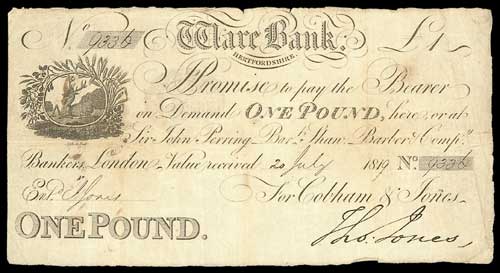 No. 9336 Ware Bank. £1
HERTFORDSHIRE.
I Promise to pay the Bearer
on Demand ONE POUND, here, or at
Sir John Perring Bart. Shaw Barber & Compy.
Bankers London Value received 20 July 1819 No. 9336
Entd. Jones For Cobham & Jones.
ONE POUND. Thos. Jones